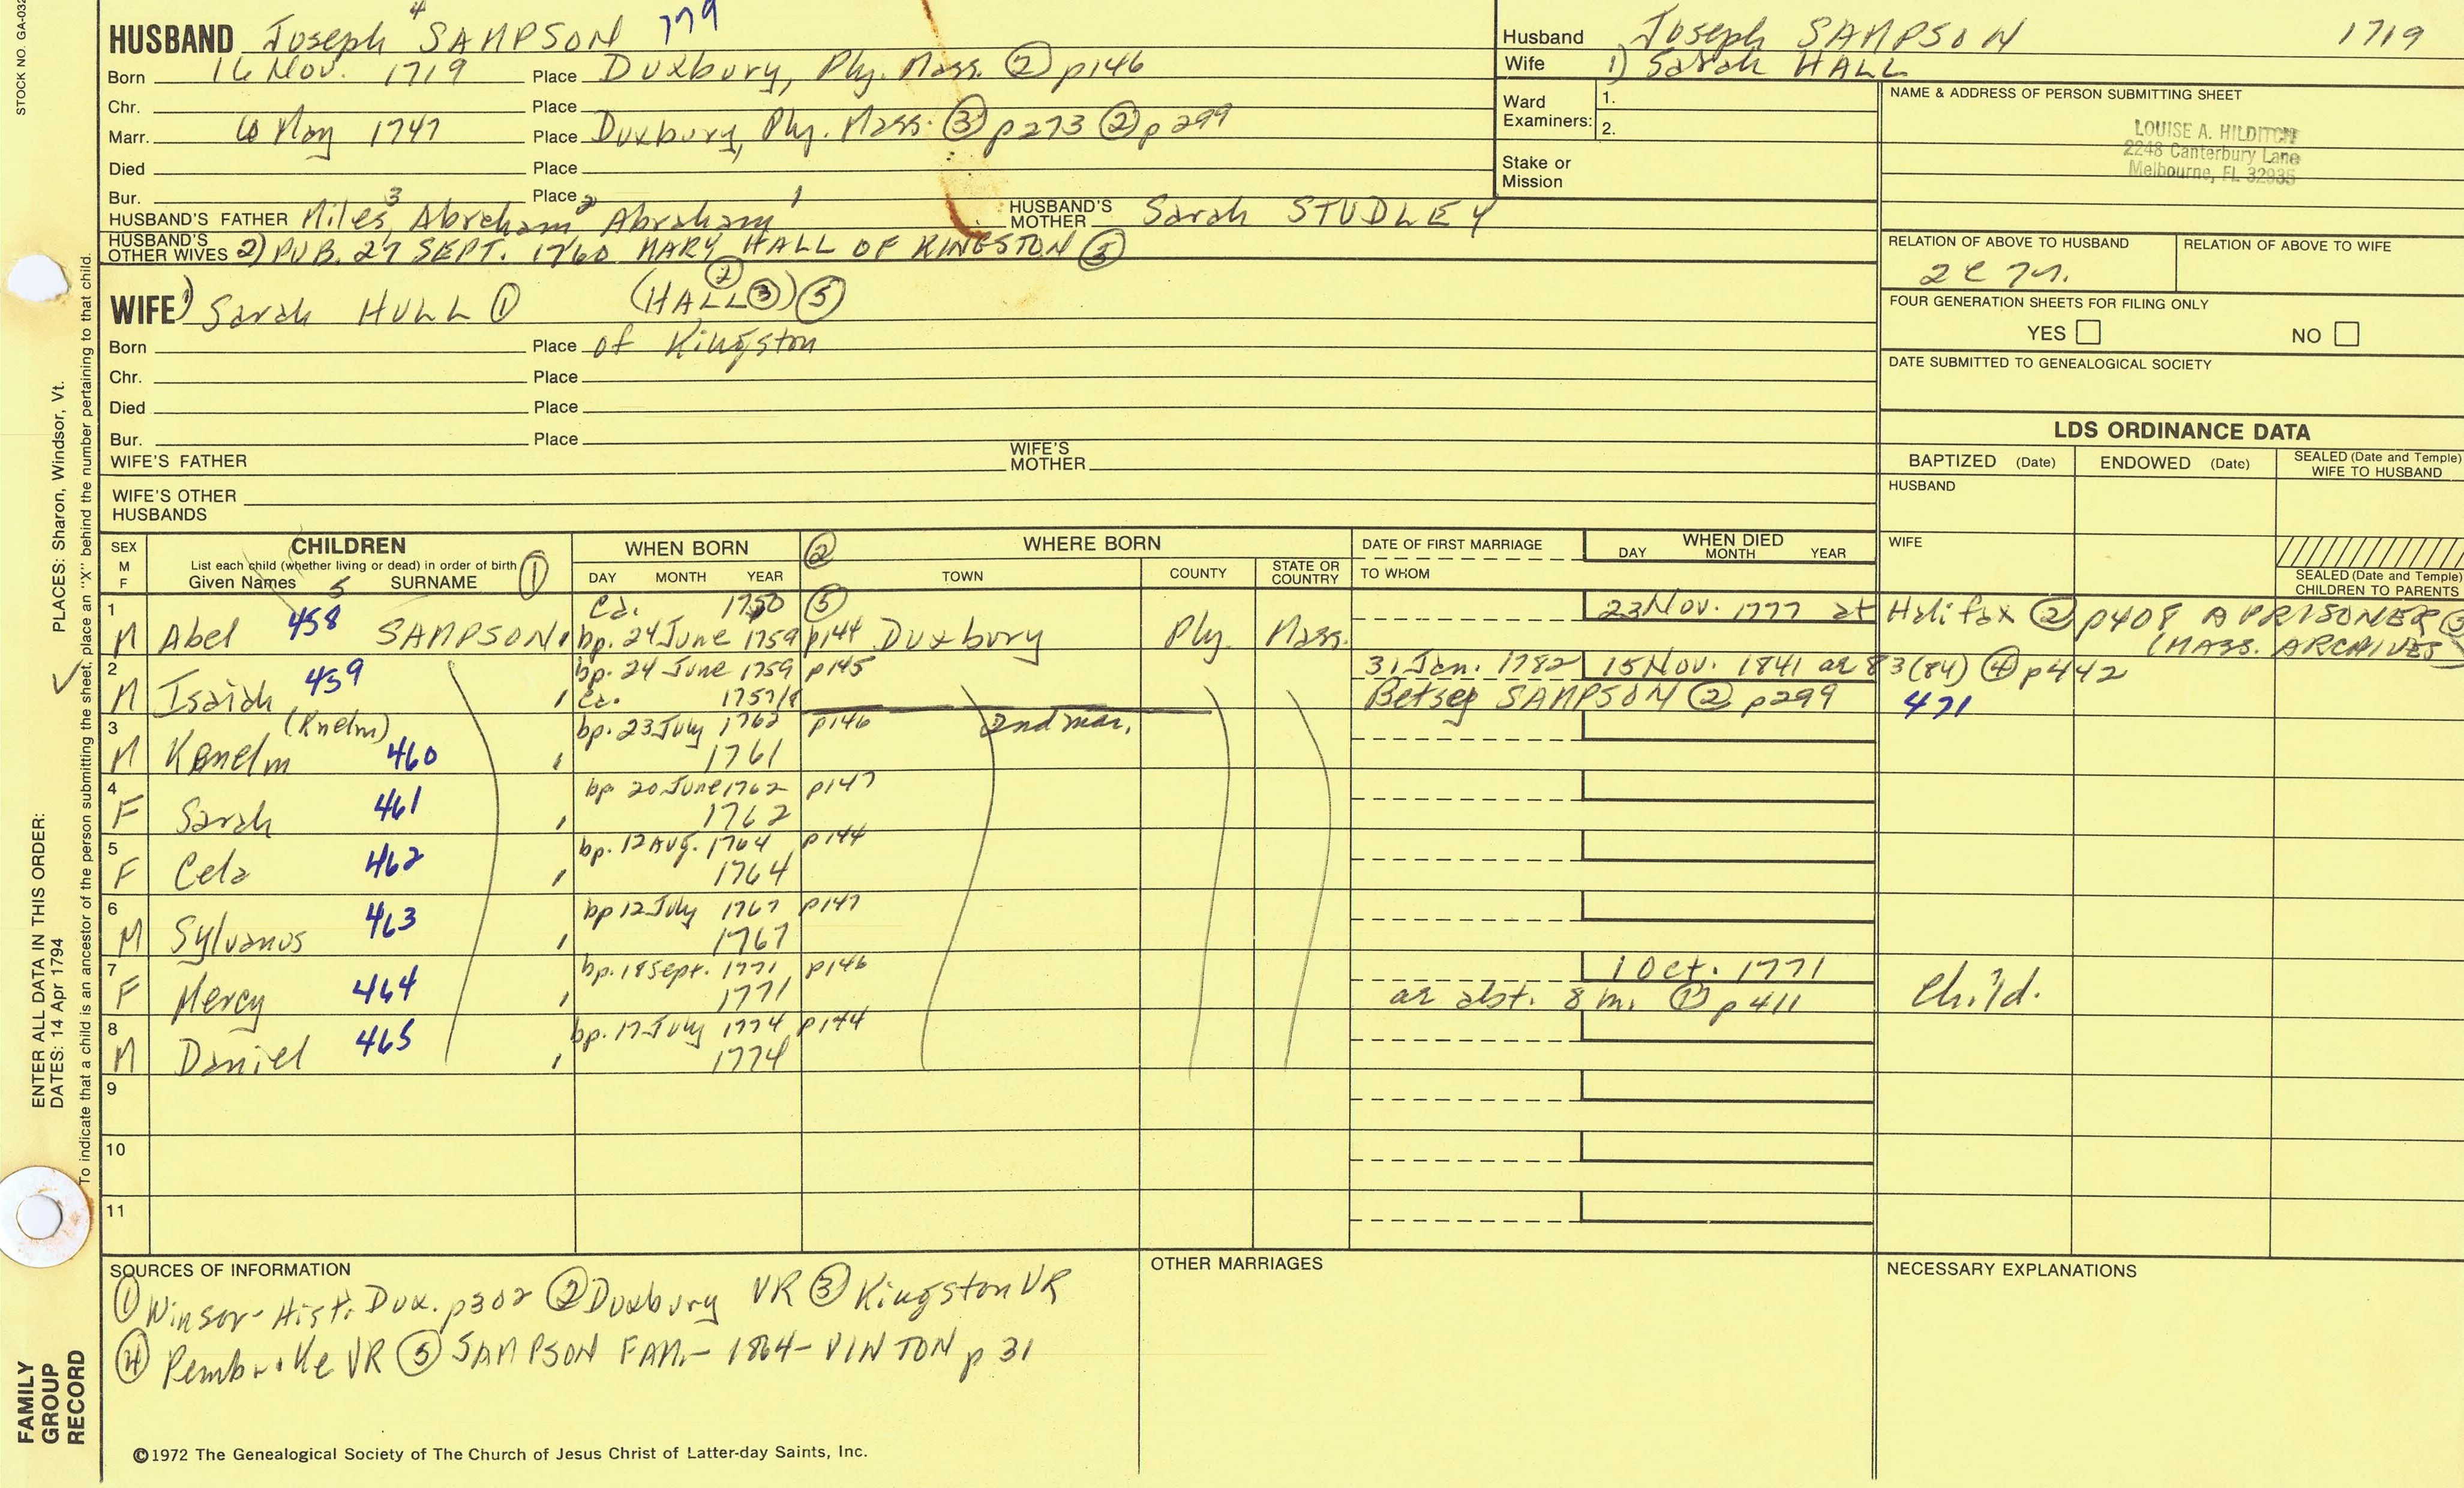 STOCK NO. GA-032
HUSBAND Joseph 4 SAMPSON 779
Born 16 Nov. 1719 Place Duxbury, Ply. Mass. ② p146
Chr. Place
Marr. May 1747 Place Duxbury, Ply. Mass. ③ p273 ② p299
Died Place
Bur. Place
HUSBAND'S FATHER Miles 3 Abraham 2 Abraham 1 HUSBAND'S MOTHER Sarah STUDLEY
HUSBAND'S OTHER WIVES 2) PUB. 27 SEPT. 1760 MARY HALL OF KINGSTON ⑤
WIFE 1) Sarah HULL ① (HALL ② ③) ⑤
Born Place of Kingston
Chr. Place
Died Place
Bur. Place
WIFE'S FATHER WIFE'S MOTHER
WIFE'S OTHER HUSBANDS
Husband Joseph SAMPSON 1719
Wife 1) Sarah HALL
Ward Examiners: 1.
2.
Stake or Mission
NAME & ADDRESS OF PERSON SUBMITTING SHEET
LOUISE A. HILDITCH
2248 Canterbury Lane
Melbourne, FL 32935
RELATION OF ABOVE TO HUSBAND RELATION OF ABOVE TO WIFE
FOUR GENERATION SHEETS FOR FILING ONLY
YES NO
DATE SUBMITTED TO GENEALOGICAL SOCIETY
LDS ORDINANCE DATA
BAPTIZED (Date) ENDOWED (Date) SEALED (Date and Temple) WIFE TO HUSBAND
HUSBAND
WIFE
SEALED (Date and Temple) CHILDREN TO PARENTS
SEX M F CHILDREN List each child (whether living or dead) in order of birth Given Names 5 SURNAME ① WHEN BORN DAY MONTH YEAR ② WHERE BORN TOWN COUNTY STATE OR COUNTRY DATE OF FIRST MARRIAGE TO WHOM WHEN DIED DAY MONTH YEAR
1 ca. 1750 ⑤ 23 Nov. 1777 at Halifax ② p408 A PRISONER
M Abel 458 SAMPSON bp. 24 June 1759 p144 Duxbury Ply. Mass. (MASS. ARCHIVES)
2 bp. 24 June 1759 p145 31 Jan. 1782 15 Nov. 1841 ae 83 (84) ④ p442
M Isaiah 459 ca. 1757/8 Betsey SAMPSON ② p299 471
3 (Knelm) bp. 23 July 1762 p146 2nd mar.
M Kenelm 460 1761
4 bp 20 June 1762 p147
F Sarah 461 1762
5 bp. 12 Aug. 1764 p144
F Cela 462 1764
6 bp 12 July 1767 p147
M Sylvanus 463 1767
7 bp. 18 Sept. 1771 p146 1 Oct. 1771
F Mercy 464 1771 ae abt. 8 m. p411 Child.
8 bp. 17 July 1774 p144
M Daniel 465 1774
9
10
11
SOURCES OF INFORMATION
① Winsor - Hist. Dux. p302 ② Duxbury VR ③ Kingston VR
④ Pembroke VR ⑤ SAMPSON FAM. - 1864 - VINTON p 31
OTHER MARRIAGES
NECESSARY EXPLANATIONS
©1972 The Genealogical Society of The Church of Jesus Christ of Latter-day Saints, Inc.
ENTER ALL DATA IN THIS ORDER:
DATES: 14 Apr 1794 PLACES: Sharon, Windsor, Vt.
To indicate that a child is an ancestor of the person submitting the sheet, place an "X" behind the number pertaining to that child.
FAMILY GROUP RECORD